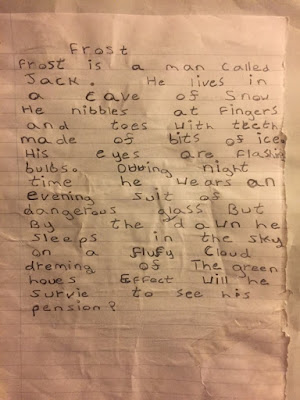 Frost
Frost is a man called
Jack. He lives in
a cave of Snow
He nibbles at fingers
and toes with teeth
made of bits of ice
His eyes are flashing
bulbs. During night
time he wears an
evening suit of
dangerous glass But
By the dawn he
sleeps in the sky
on a flufy cloud
dreming of The green
houes Effect will he
survie to see his
pension?